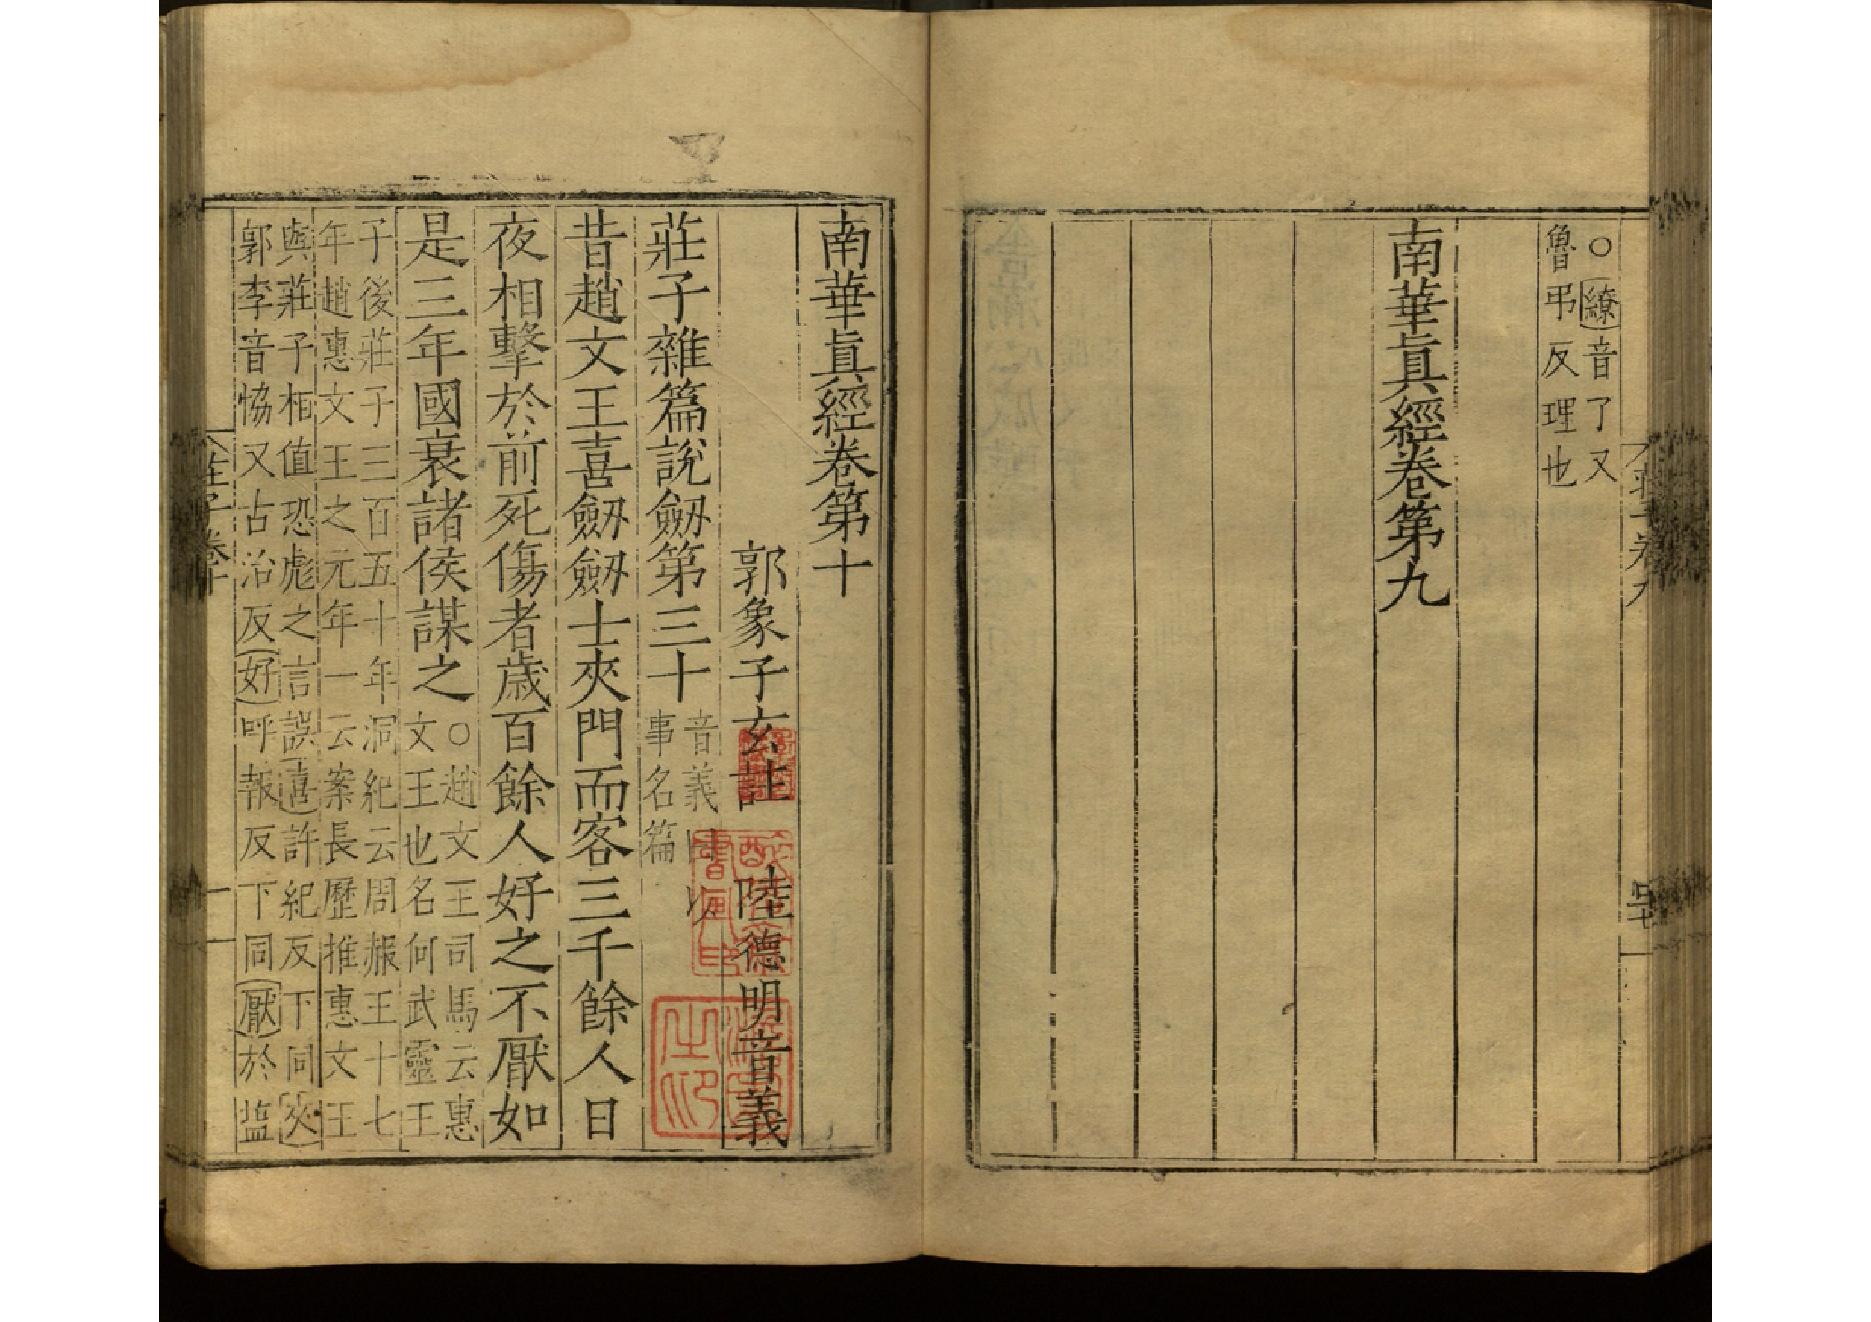 ○繚音了又
魯弔反理也
南華眞經卷第九
南華眞經卷第十
郭象子玄註 陸德明音義
莊子雜篇說劒第三十
音義曰以
事名篇
昔趙文王喜劒劒士夾門而客三千餘人日
夜相擊於前死傷者歲百餘人好之不厭如
是三年國衰諸侯謀之
○趙文王司馬云惠
文王也名何武靈王
子後莊子三百五十年洞紀云周赧王十七
年趙惠文王之元年一云案長歷推惠文王
與莊子相值恐彪之言誤喜許紀反下同夾
郭李音恊又古洽反好呼報反下同厭於盐
莊子卷十
一